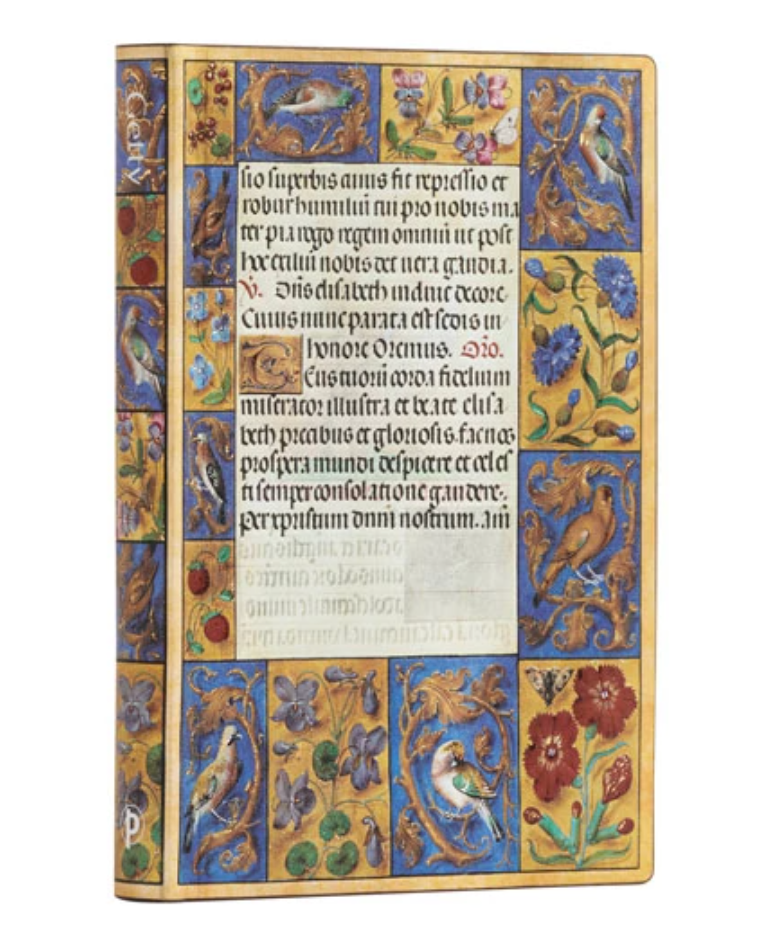 Getty
sio superbis fit repressio et
robur humiliū cui pro nobis ma
ter pia rogo regem omniū ut post
hoc exiliū nobis det uera gaudia.
V. elisabeth in decore
Cuius nunc parata est sedis in
honore Oremus. Oro.
Deus tuorū corda fidelium
miserator illustra et beate elisa
beth precibus et gloriosis. fac nos
prospera mundi despicere et celes
ti semper consolatione gaudere.
Per xpristum dnm nostrum. am
P